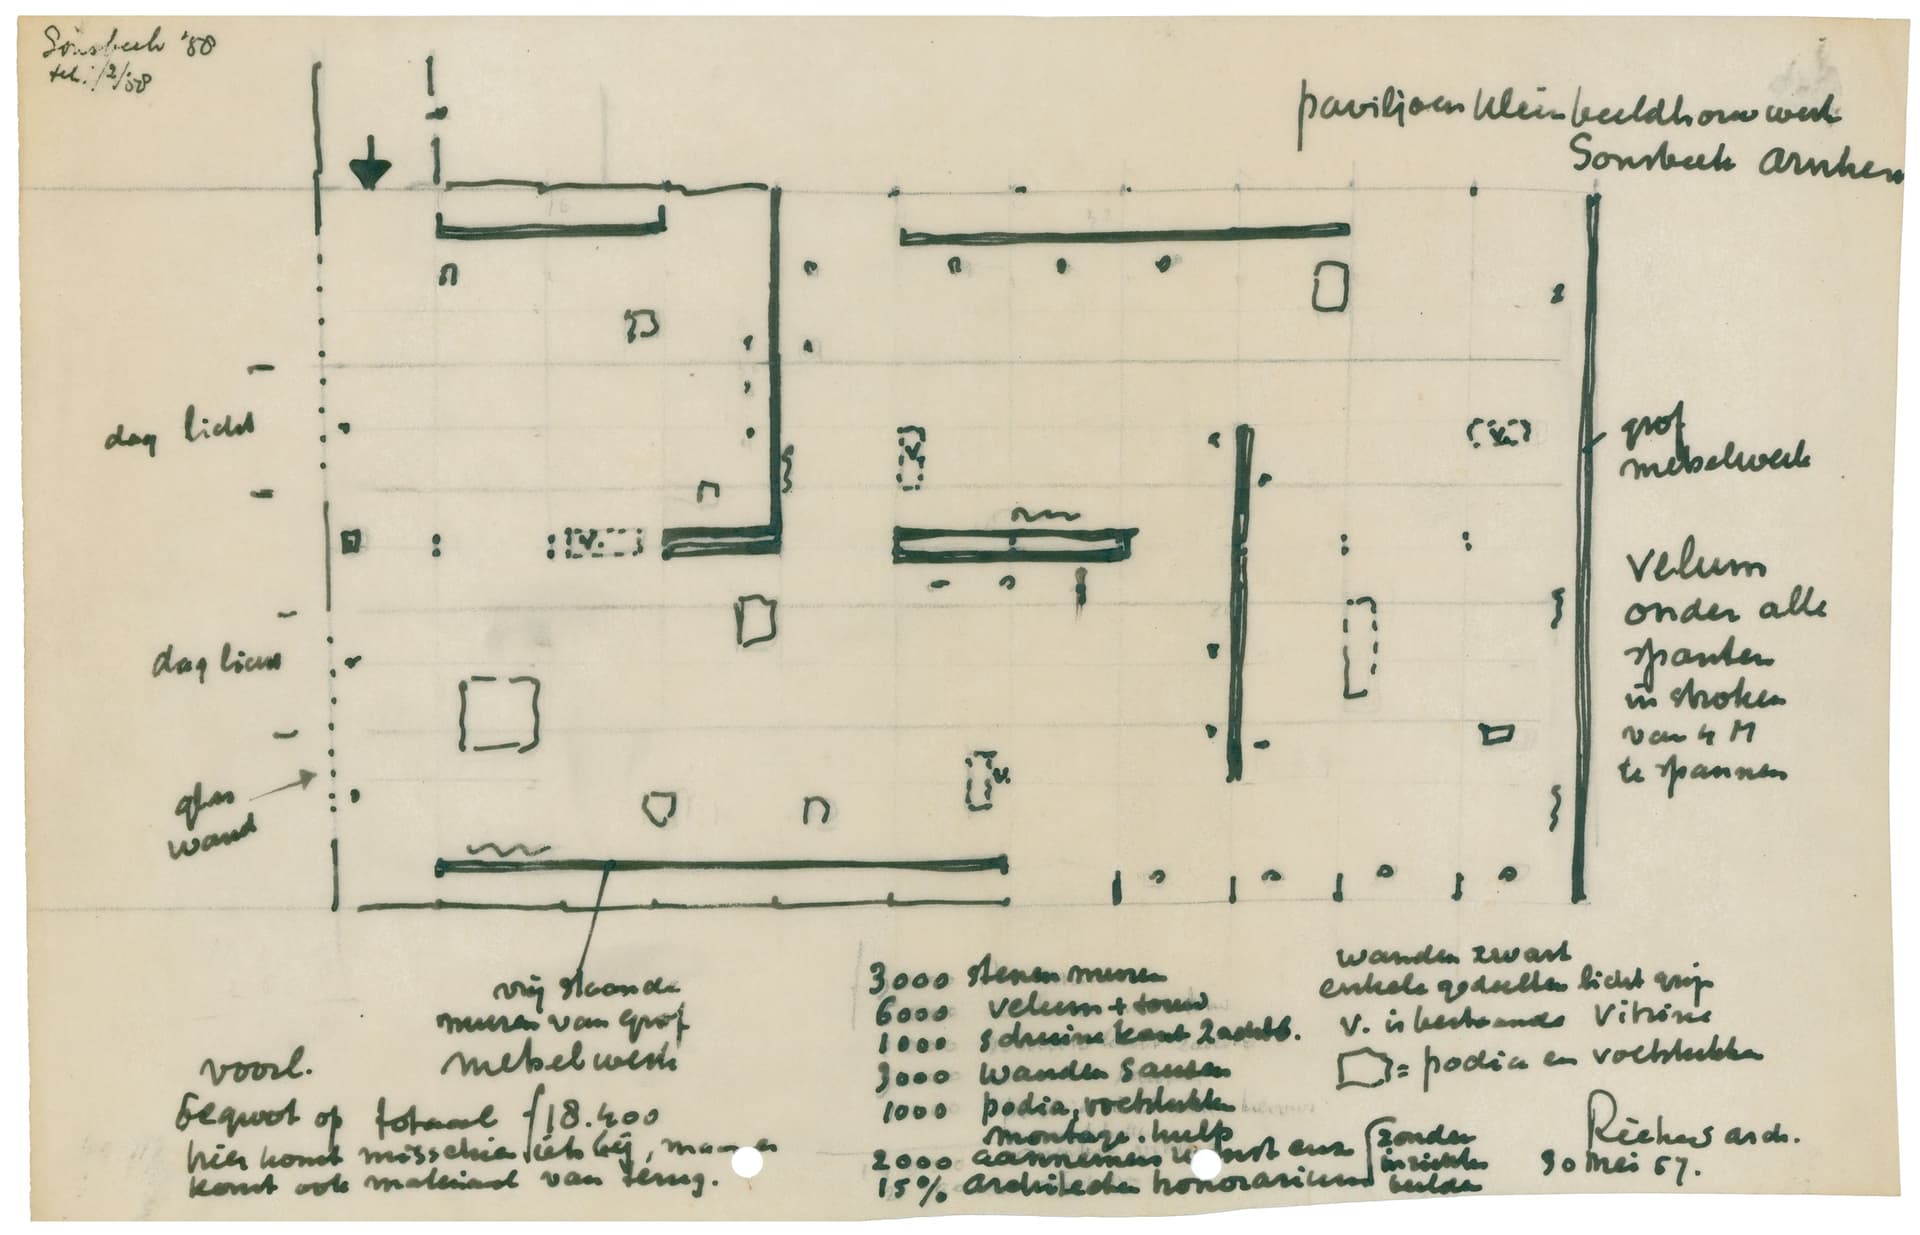 Sonsbeek '58
tek. 1/2/'58
paviljoen klein beeldhouwwerk
Sonsbeek Arnhem
dag licht
dag licht
glas
wand
v.
v.
v.
v.
grof
metselwerk
velum
onder alle
spanten
in stroken
van 4 M
te spannen
vrij staande
muren van grof
metselwerk
voorl.
begroot op totaal f 18.400
hier komt misschien iets bij, maar er
komt ook materiaal van terug.
3000 stenen muren
6000 velum + touw
1000 schuine kant 2 achtk.
3000 wanden sausen
1000 podia, voetstukken
montage. hulp
2000 aannemers winst enz
15% architecten honorarium
zonder
inrichten
beelden
wanden zwart
enkele gedeelten licht grijs
v. is bestaande vitrine
= podia en voetstukken
Rietveld arch.
30 mei 57.